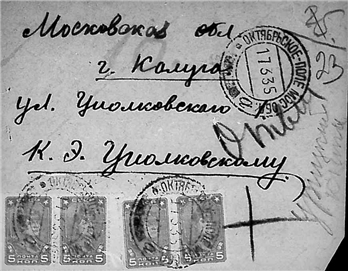 Московская обл
г. Калуга
ул. Циолковского
К. Э. Циолковскому
ОКТЯБРЬСКОЕ-ПОЛЕ МОС. ОБЛ.
17.6.35
23
5 КОП 5
5 КОП 5
5 КОП 5
5 КОП 5